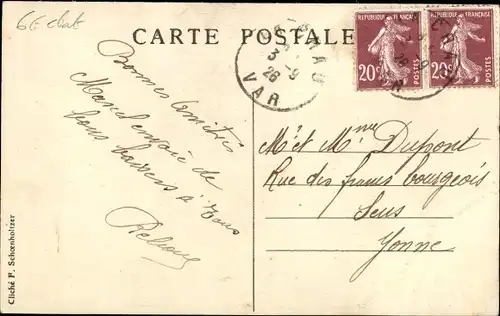 6E
CARTE POSTALE
3 - 9
26
VAR
REPUBLIQUE FRANÇAISE
20c
POSTES
REPUBLIQUE FRANÇAISE
20c
POSTES
Bonnes Amitiés
Marcel envoie de
bons baisers à Tous
Mr et Mme Dupont
Rue des francs bourgeois
Sens
Yonne
Cliché F. Schœnholtzer